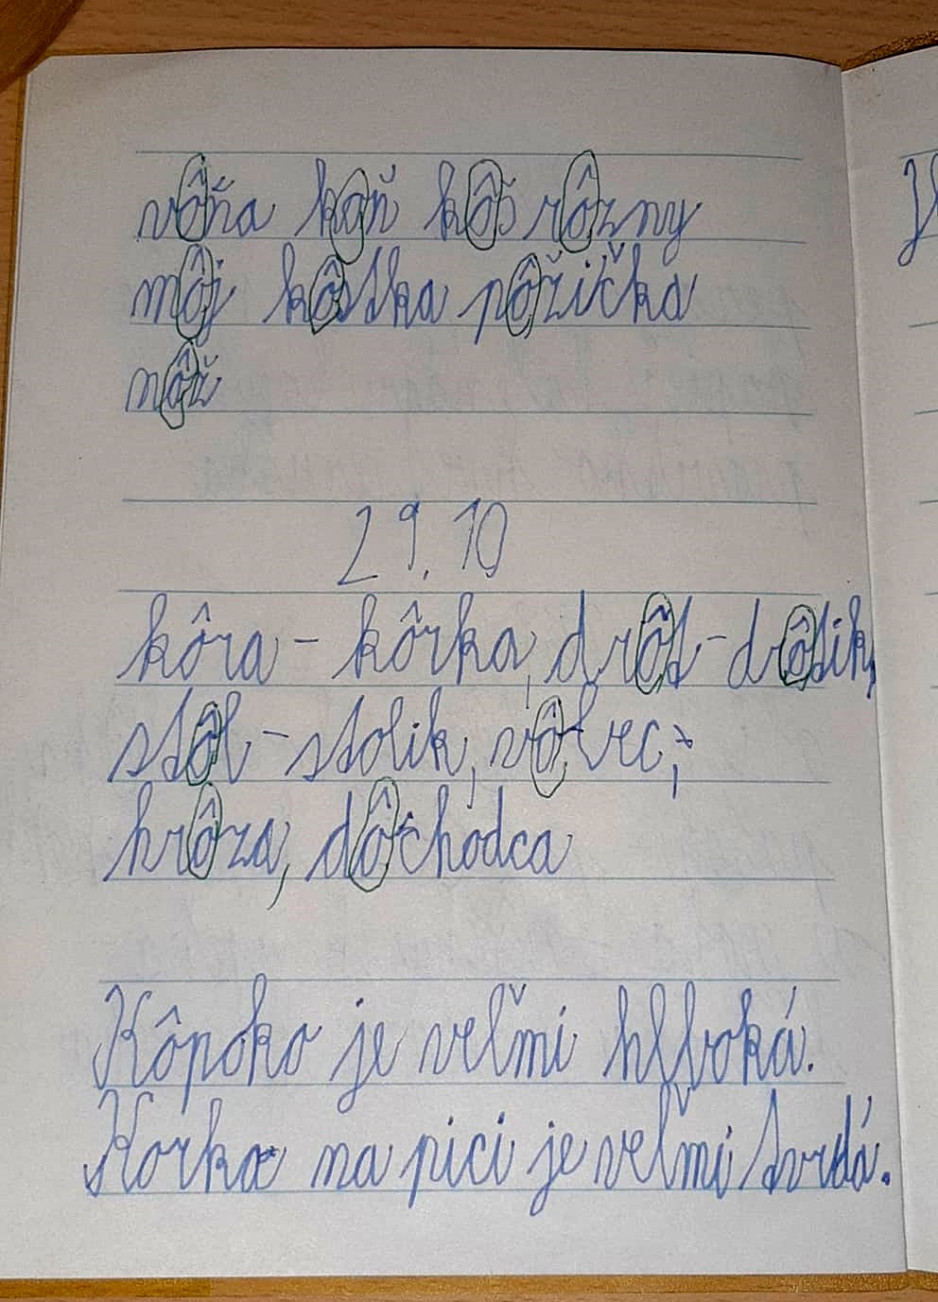 vôňa kôň kôš rôzny
môj kôstka pôžička
nôž
29. 10
kôra - kôrka, drôt - drôtik,
stôl - stolik, vôbec;
hrôza, dôchodca
Kôpoko je veľmi hlboká.
Korka na pici je veľmi tvrdá.